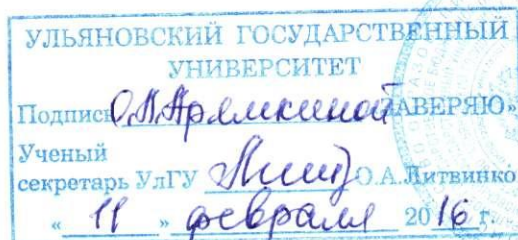 УЛЬЯНОВСКИЙ ГОСУДАРСТВЕННЫЙ
УНИВЕРСИТЕТ
Подпись О.Л.Арямкиной ЗАВЕРЯЮ»
Ученый
секретарь УлГУ О.А.Литвинко
« 11 » февраля 2016 г.